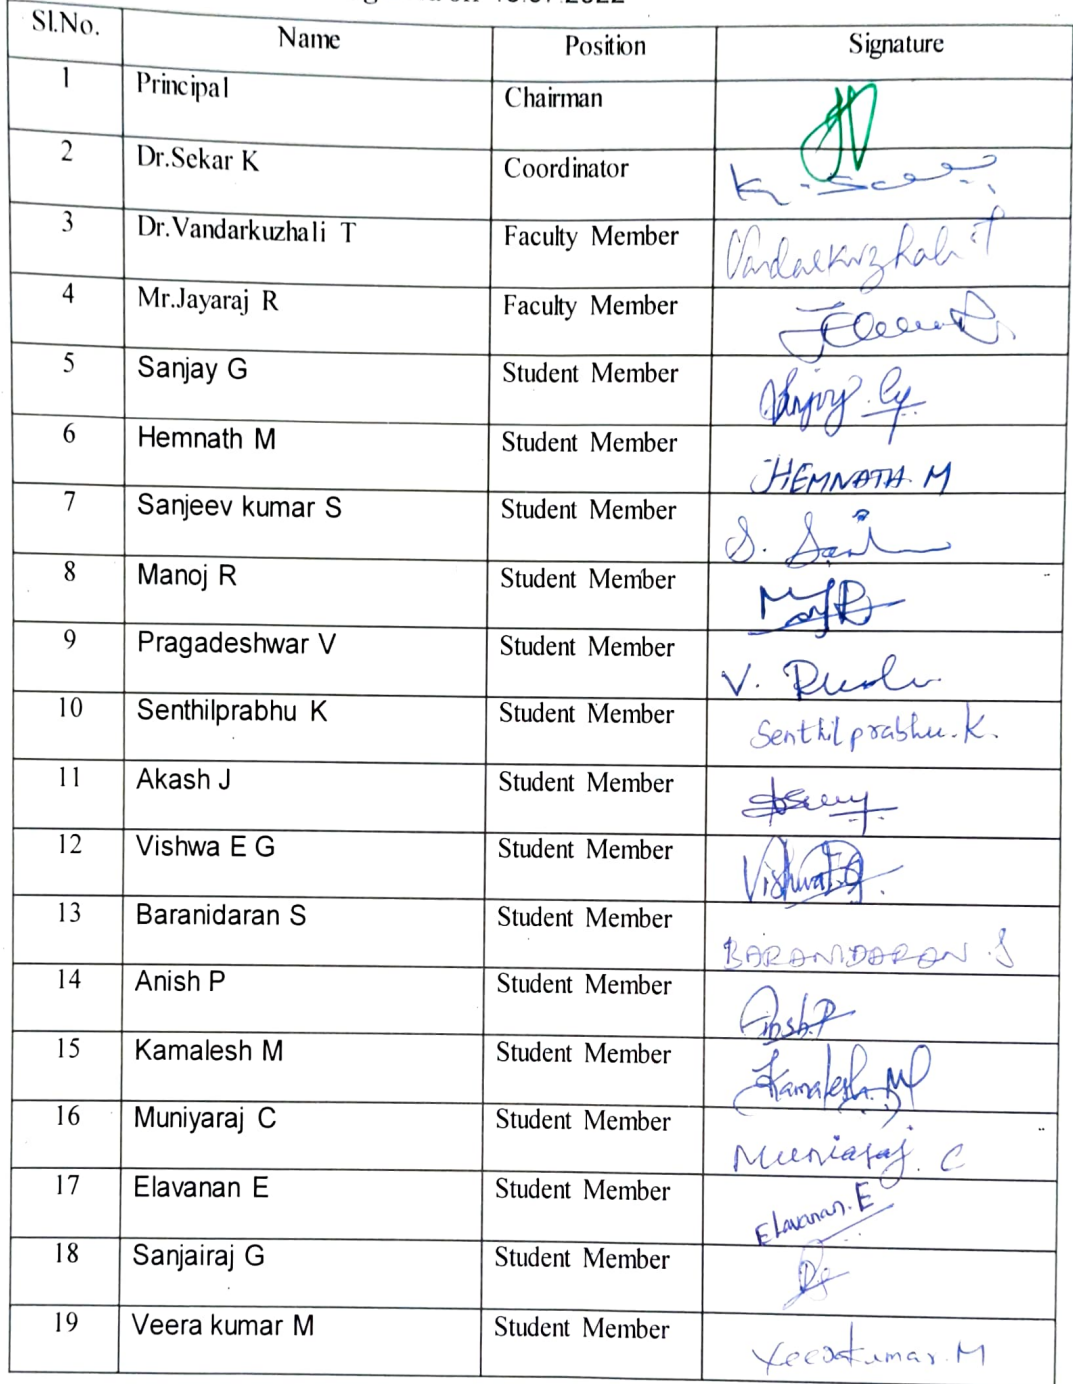 Sl.No. Name Position Signature
1 Principal Chairman
2 Dr.Sekar K Coordinator
3 Dr.Vandarkuzhali T Faculty Member Vandarkuzhali T
4 Mr.Jayaraj R Faculty Member
5 Sanjay G Student Member Sanjay. G
6 Hemnath M Student Member HEMNATH. M
7 Sanjeev kumar S Student Member
8 Manoj R Student Member
9 Pragadeshwar V Student Member
10 Senthilprabhu K Student Member Senthilprabhu. K.
11 Akash J Student Member
12 Vishwa E G Student Member
13 Baranidaran S Student Member BARANIDARAN . S
14 Anish P Student Member
15 Kamalesh M Student Member Kamalesh. M
16 Muniyaraj C Student Member Muniaraj. C
17 Elavanan E Student Member Elavanan. E
18 Sanjairaj G Student Member
19 Veera kumar M Student Member Veerakumar. M